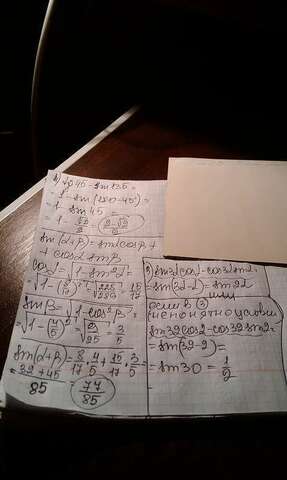 1) tg45 - sin135 =
= 1 - sin(180-45) =
= 1 - sin45 =
= 1 - √2/2 = (2-√2)/2
sin(α+β) = sinα cosβ +
+ cosα sinβ
cosα = √(1 - sin²α) =
= √(1 - (8/17)²) = √(225/289) = 15/17
sinβ = √(1 - cos²β) =
= √(1 - (4/5)²) = √(9/25) = 3/5
sin(α+β) = 8/17 · 4/5 + 15/17 · 3/5 =
= (32+45)/85 = 77/85
3) sin3α cosα - cos3α sinα =
= sin(3α-α) = sin2α
или
если в (3)
непонятно условие
sin32 cos2 - cos32 sin2 =
= sin(32-2) =
= sin30 = 1/2